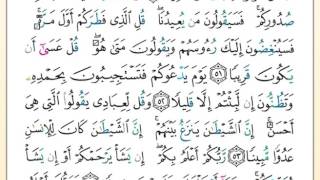 صُدُورِكُمْ ۚ فَسَيَقُولُونَ مَن يُعِيدُنَا ۖ قُلِ الَّذِي فَطَرَكُمْ أَوَّلَ مَرَّةٍ ۚ
فَسَيُنْغِضُونَ إِلَيْكَ رُءُوسَهُمْ وَيَقُولُونَ مَتَىٰ هُوَ ۖ قُلْ عَسَىٰ أَن
يَكُونَ قَرِيبًا ٥١ يَوْمَ يَدْعُوكُمْ فَتَسْتَجِيبُونَ بِحَمْدِهِ
وَتَظُنُّونَ إِن لَّبِثْتُمْ إِلَّا قَلِيلًا ٥٢ وَقُل لِّعِبَادِي يَقُولُوا الَّتِي هِيَ
أَحْسَنُ ۚ إِنَّ الشَّيْطَانَ يَنزَغُ بَيْنَهُمْ ۚ إِنَّ الشَّيْطَانَ كَانَ لِلْإِنسَانِ
عَدُوًّا مُّبِينًا ٥٣ رَّبُّكُمْ أَعْلَمُ بِكُمْ ۖ إِن يَشَأْ يَرْحَمْكُمْ أَوْ إِن يَشَأْ